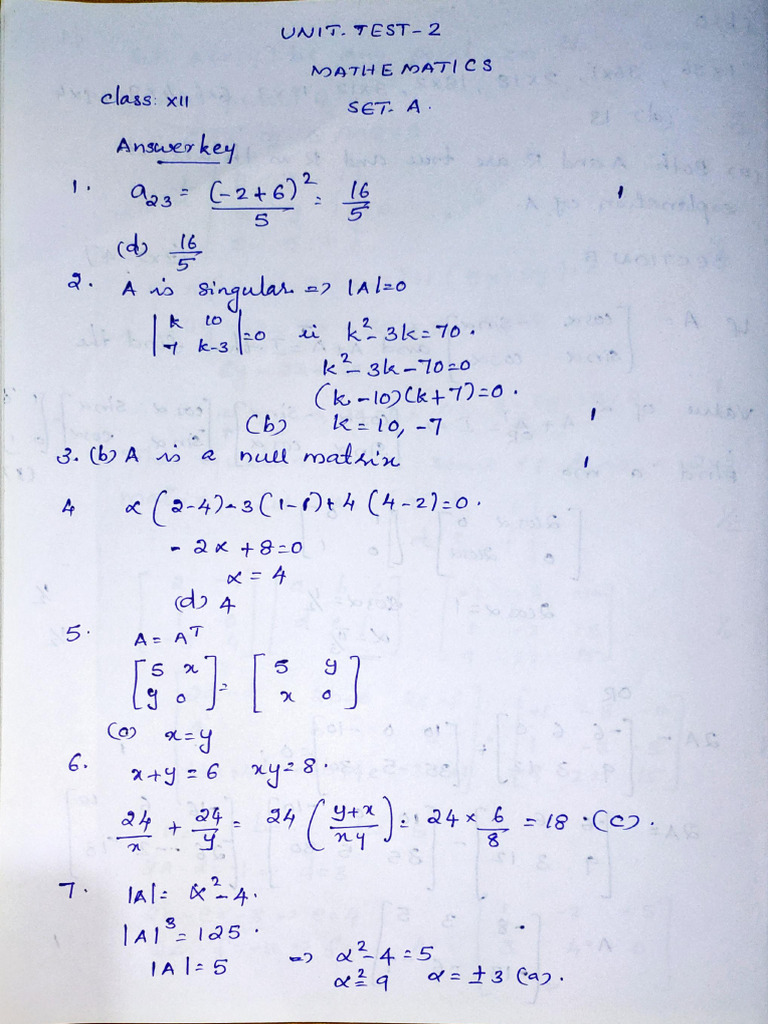 UNIT. TEST-2
MATHEMATICS
class: XII
SET- A.
Answer key
1. a₂₃ = (-2+6)²/5 = 16/5 1
(d) 16/5
2. A is singular => |A|=0
|k 10; 7 k-3| = 0 ii k²-3k=70.
k²-3k-70=0
(k-10)(k+7)=0.
(b) k=10, -7 1
3. (b) A is a null matrix 1
4 α(2-4)-3(1-1)+4(4-2)=0.
-2α+8=0
α=4
(d) 4
5. A = Aᵀ
[5 x; y 0] = [5 y; x 0]
(a) x=y
6. x+y=6 xy=8.
24/x + 24/y = 24((y+x)/xy) = 24×6/8 = 18 .(c).
7. |A| = α²-4.
|A|³=125.
|A|=5 => α²-4=5
α²=9 α=±3 (a).